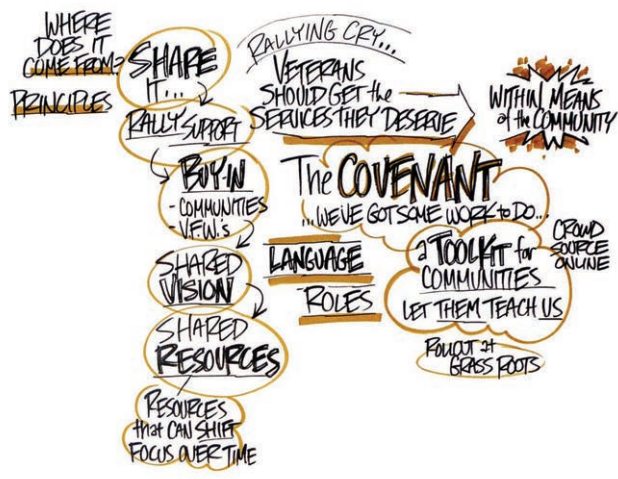 WHERE
DOES IT
COME FROM?
PRINCIPLES
SHARE
IT...
RALLY SUPPORT
BUY-IN
- COMMUNITIES
- V.F.W.'s
SHARED
VISION
SHARED
RESOURCES
RESOURCES
that CAN SHIFT
FOCUS OVER TIME
RALLYING CRY...
VETERANS
SHOULD GET the
SERVICES THEY DESERVE
WITHIN MEANS
of the COMMUNITY
The COVENANT
...WE'VE GOT SOME WORK to DO...
LANGUAGE
ROLES
a TOOLKIT for
COMMUNITIES
LET THEM TEACH US
CROWD
SOURCE
ONLINE
ROLLOUT at
GRASS ROOTS